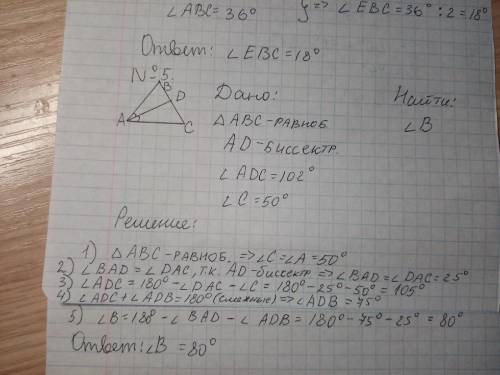 ∠ABC=36°
} => ∠EBC=36°:2=18°
Ответ: ∠EBC=18°
№5.
B
D
A
C
Дано:
△ABC-РАВНОБ.
AD-биссектр.
∠ADC=102°
∠C=50°
Найти:
∠B
Решение:
1) △ABC-РАВНОБ. => ∠C=∠A=50°
2) ∠BAD=∠DAC, т.к. AD-биссектр. => ∠BAD=∠DAC=25°
3) ∠ADC=180°-∠DAC-∠C=180°-25°-50°=105°
4) ∠ADC+∠ADB=180°(смежные) => ∠ADB=75°
5) ∠B=188-∠BAD-∠ADB=180°-75°-25°=80°
Ответ: ∠B=80°